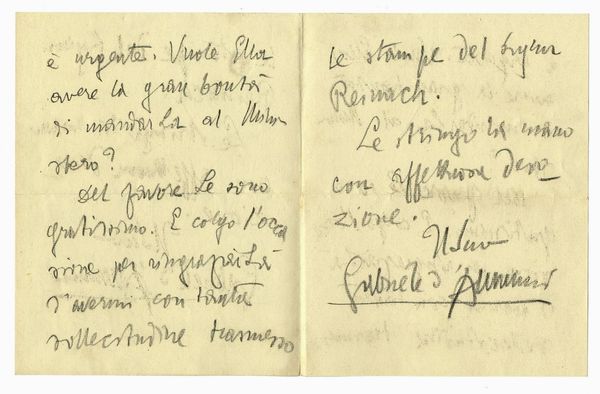 è urgente. Vuole Ella
avere la gran bontà
di mandarLa al Mini-
stero?
Del favore Le sono
gratissimo. E colgo l'occa
sione per ringraziarLa
d'avermi con tanta
sollecitudine trasmesso
le stampe del Signor
Reinach.
Le stringo la mano
con affettuosa devo-
zione.
Il Suo
Gabriele d'Annunzio